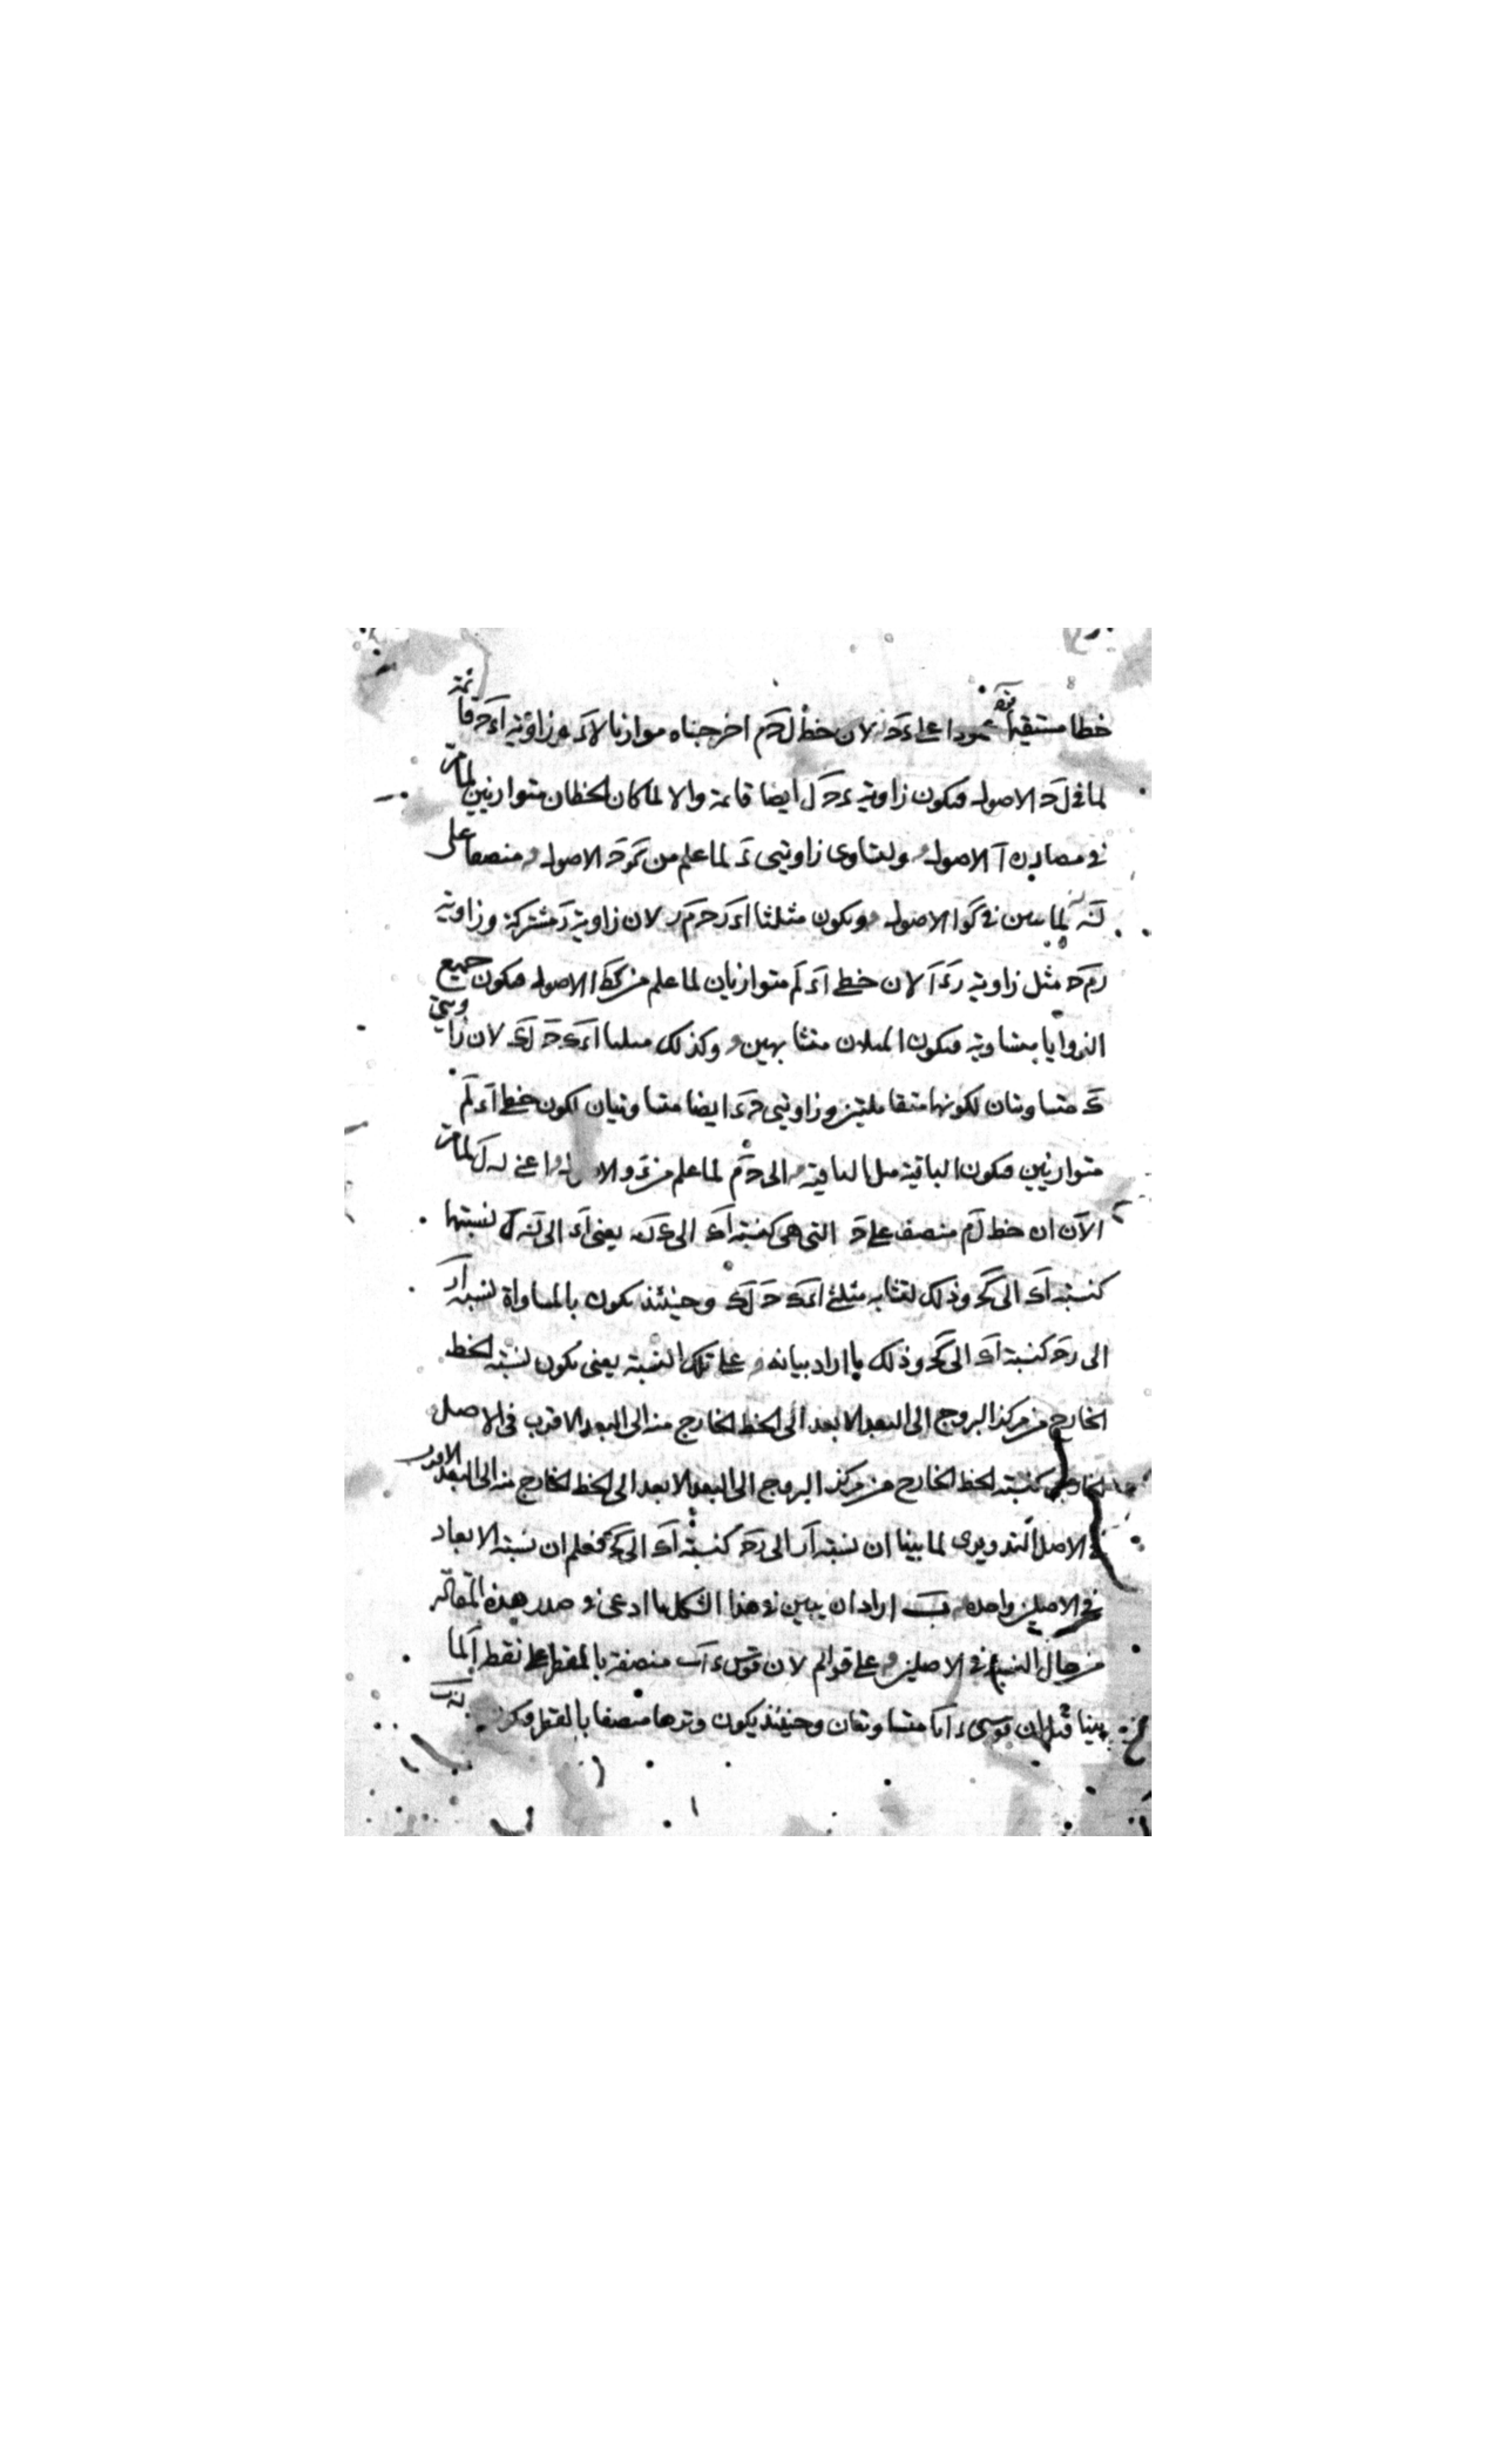 خطا مستقيما عمودا على ءح لان خط ل ح م اخرجناه موازيا لاء وزاوية اءح قائمة
لما فى لح الاصول فيكون زاوية ءح ل ايضا قائمة والا لما كان الخطان متوازيين لما مر
فى مصادرة آ الاصول ولتساوى زاويتى ءَ لما علم من الاصول منصفا على
لما تبين فى الاصول ويكون مثلثا لان زاوية رَ مشتركة وزاوية
رم ح مثل زاوية رءآ لان خطى اءَ لمَ متوازيان لما علم من كط ا الاصول فيكون جميع
الزوايا متساوية فيكون المثلثان متشابهين وكذلك مثلثا اءك ح لك لان زاويتى
كَ متساويتان لكونهما متقابلتين وزاويتى حَ ءَ ايضا متساويتان لكون خطى اءَ لمَ
متوازيين فيكون الباقية مثل الباقية الى حم لما علم من اعنى لما مر
الآن ان خط لم منصف على ح التى هى كنسبة اك الى يعنى اءَ الى نسبتها
كنسبة اك الى كح وذلك لتشابه مثلثى اءك ح لك وحينئذ يكون بالمساواة نسبة ار
الى رح كنسبة اك الى كح وذلك ما اراد بيانه على تلك النسبة يعنى يكون نسبة الخط
الخارج من مركز البروج الى البعد الابعد الى الخط الخارج منه الى البعد الاقرب فى الاصل
الخارجى كنسبة الخط الخارج من مركز البروج الى البعد الابعد الى الخط الخارج منه الى البعد الاقرب
فى الاصل التدويرى لما بينا ان نسبة ار الى رح كنسبة اك الى كح فعلم ان نسبة الابعاد
فى الاصلين واحدة ب اراد ان يبين فى هذا الشكل ما ادعى فى صدر هذه المقالة
من حال النسب فى الاصلين على قوائم لان قوس ءاب منصفة بالقطر على نقط آ لما
بينا قبل ان قوسى متساويتان وحينئذ يكون وترها منصفا بالقطر